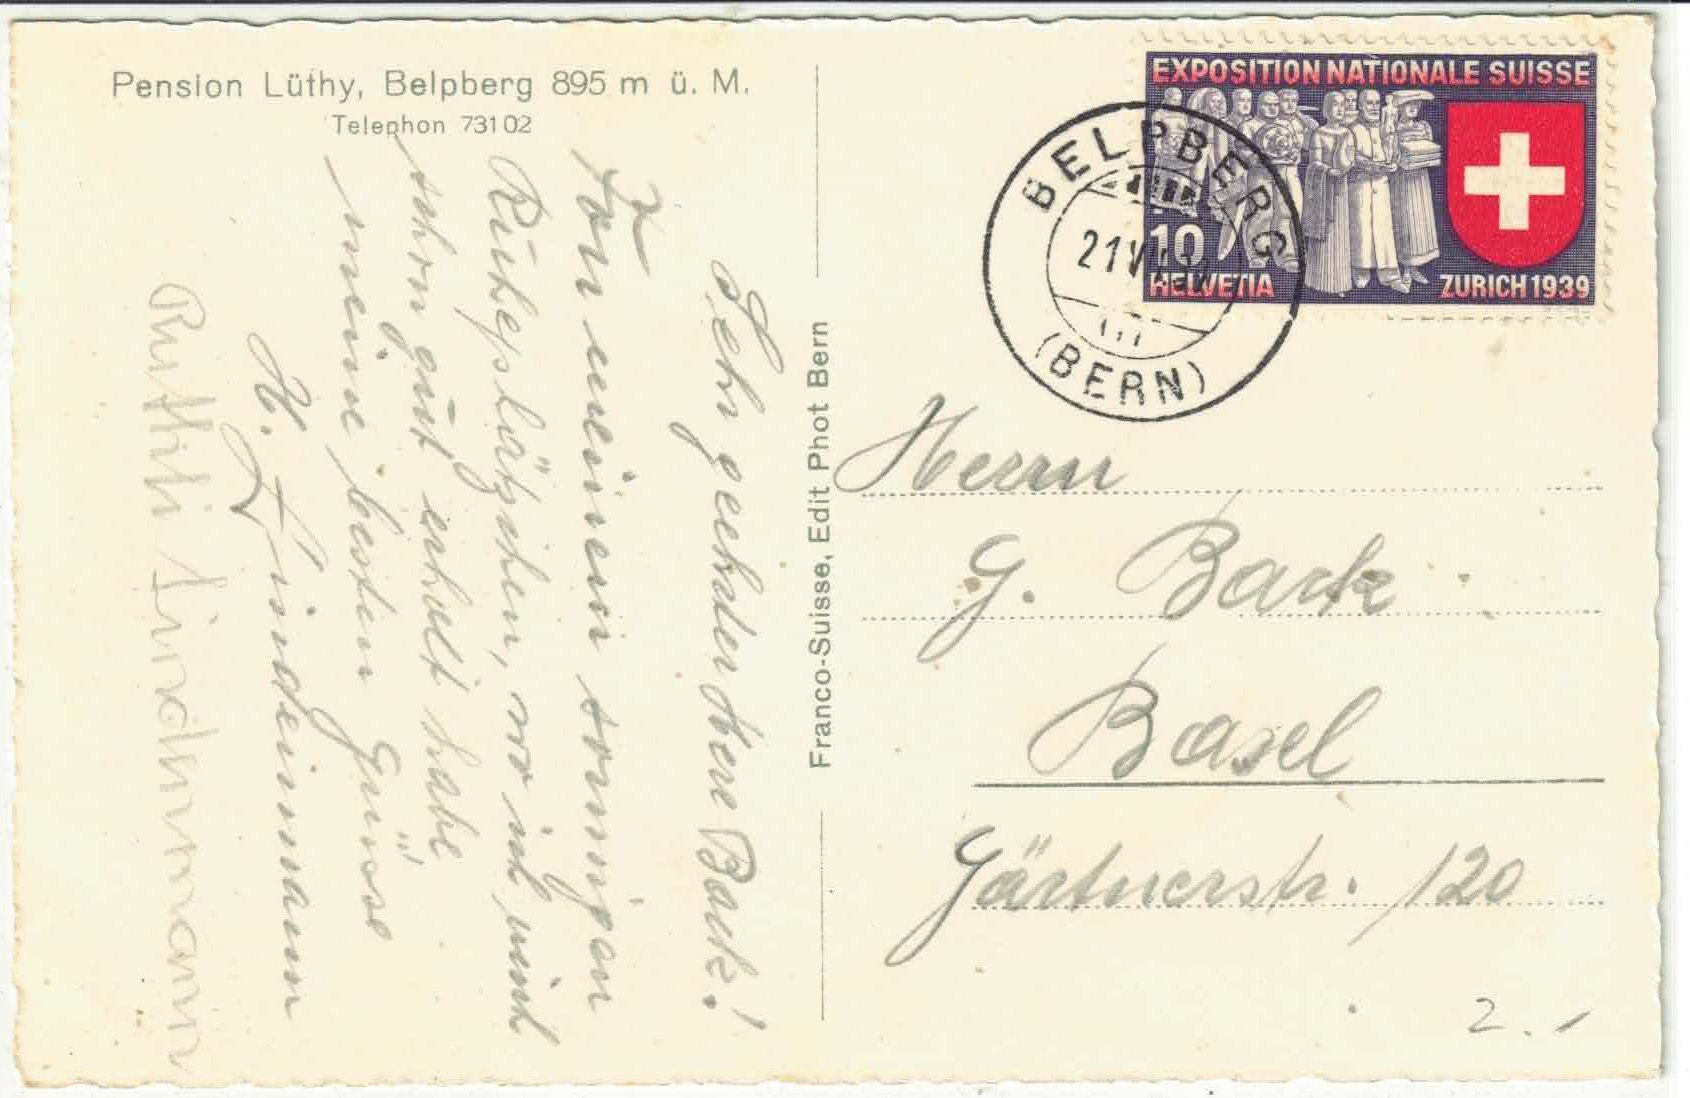 Pension Lüthy, Belpberg 895 m ü. M.
Telephon 73102
Sehr geehrter Herr Bark!
Von meinem sonnigen
Ruheplätzchen, wo ich mich
schon gut erholt habe
meine besten Grüsse
H. Lindenmann
Ruthli Lindenmann
Franco-Suisse, Edit Phot Bern
EXPOSITION NATIONALE SUISSE
10
HELVETIA
ZURICH 1939
BELPBERG
21 V
(BERN)
Herrn
G. Bark
Basel
Gärtnerstr. 120
2.